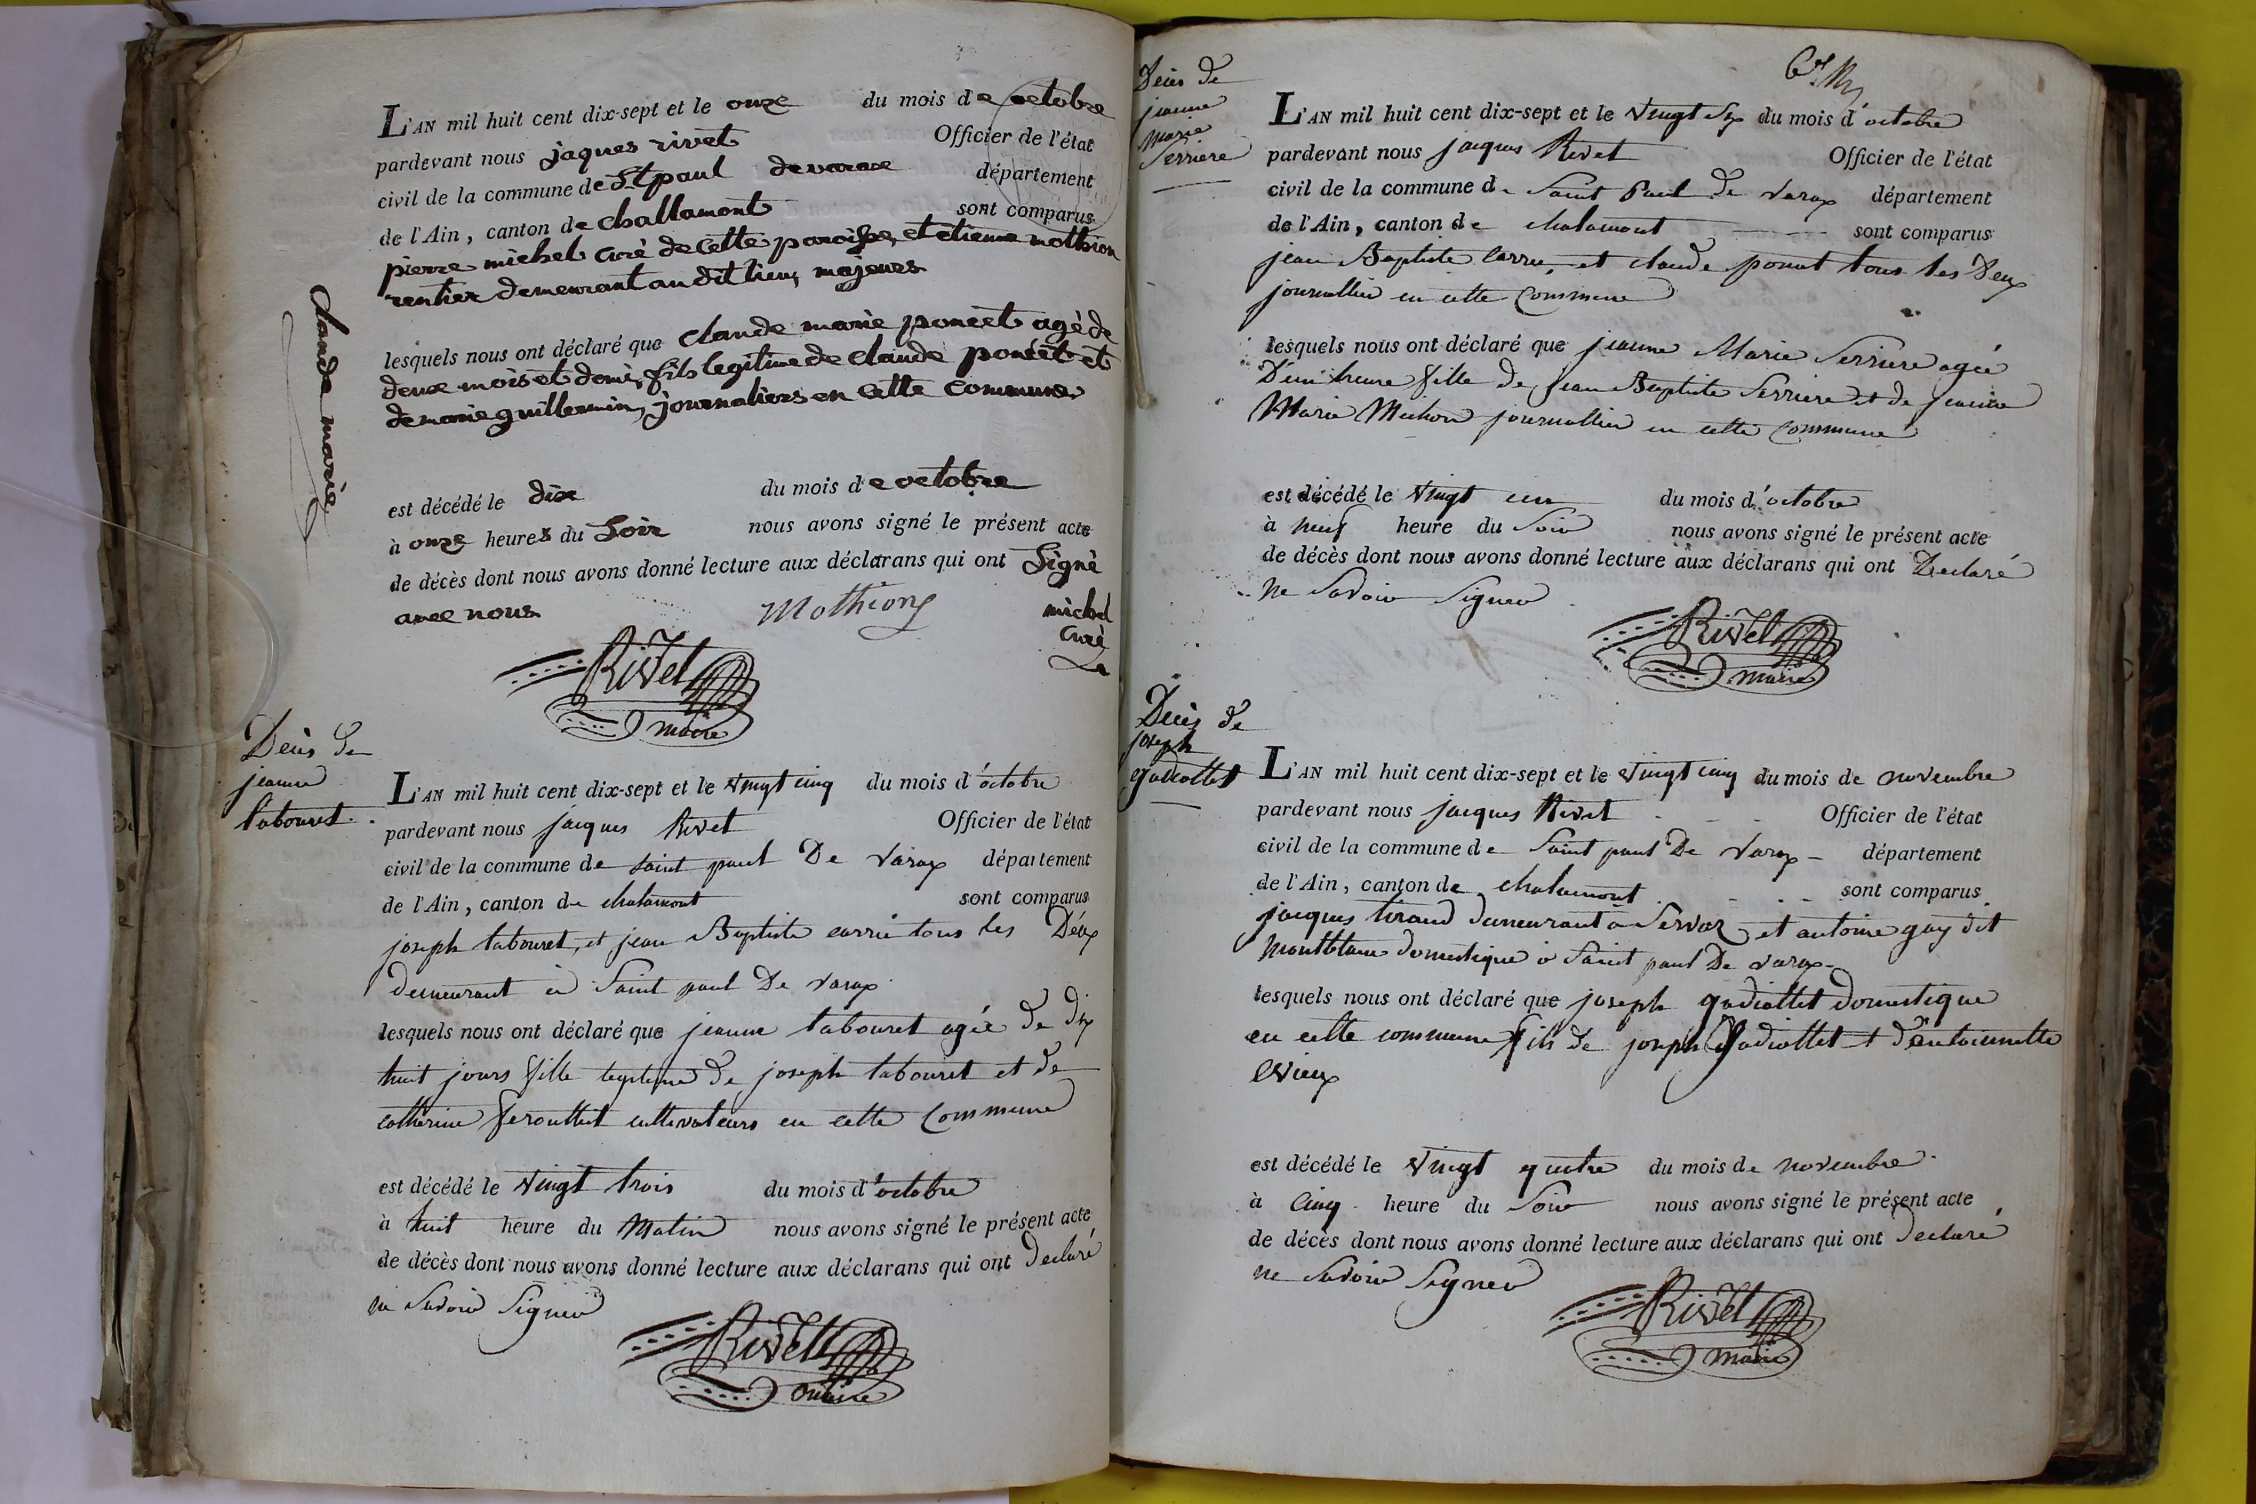 L'AN mil huit cent dix-sept et le onze du mois de octobre
pardevant nous jaques rivet Officier de l'état
civil de la commune de St paul de varax département
de l'Ain, canton de challamont sont comparus
pierre michel curè de cette paroisse, et etienne mothion
rentier demeurant au dit lieu, majeurs
lesquels nous ont déclaré que claude marie poncet agè de
deux mois et demi, fils legitime de claude poncet et
de marie guillermin, journaliers en cette commune
est décédé le dix du mois de octobre
à onze heures du Soir nous avons signé le présent acte
de décès dont nous avons donné lecture aux déclarans qui ont Signè
avec nous Mothion michel
curè
Rivet
maire
claude marie
Deces de
jeanne
tabouret
L'AN mil huit cent dix-sept et le vingt cinq du mois d'octobre
pardevant nous jacques Rivet Officier de l'état
civil de la commune de saint paul De Varax département
de l'Ain, canton de chalamont sont comparus
joseph tabouret, et jean Baptiste carrie tous les Deux
demeurant à Saint paul De Varax
lesquels nous ont déclaré que jeanne tabouret agée de dix
huit jours fille legitime de joseph tabouret et de
catherine ferouttet cultivateurs en cette Commune
est décédé le vingt trois du mois d'octobre
à huit heure du Matin nous avons signé le présent acte
de décès dont nous avons donné lecture aux déclarans qui ont Declaré
ne Savoir Signer
Rivet
maire
Deces de
jeanne
Marie
Serriere
L'AN mil huit cent dix-sept et le vingt Six du mois d'octobre
pardevant nous jacques Rivet Officier de l'état
civil de la commune de Saint Paul de Varax département
de l'Ain, canton de chalamont sont comparus
jean Baptiste carru, et claude ponut tous les Deux
journallier en cette Commune
lesquels nous ont déclaré que jeanne Marie Serriere agée
D'une heure fille de jean Baptiste Serriere et de jeanne
Marie Michon journallier en cette Commune
est décédé le vingt un du mois d'octobre
à neuf heure du Soir nous avons signé le présent acte
de décès dont nous avons donné lecture aux déclarans qui ont Declaré
ne Savoir Signer
Rivet
maire
Deces de
joseph
gudiollet
L'AN mil huit cent dix-sept et le vingt cinq du mois de novembre
pardevant nous jacques Rivet Officier de l'état
civil de la commune de Saint paul De Varax département
de l'Ain, canton de chalamont sont comparus
jacques tiraud demeurant a Servaz et antoine gay dit
montblanc domestique à Saint paul De Varax
lesquels nous ont déclaré que joseph gudiollet domestique
en cette commune fils de joseph Gudiollet et d'antoinette
Evieux
est décédé le vingt quatre du mois de novembre
à Cinq heure du Soir nous avons signé le présent acte
de décès dont nous avons donné lecture aux déclarans qui ont Declaré
ne Savoir Signer
Rivet
maire